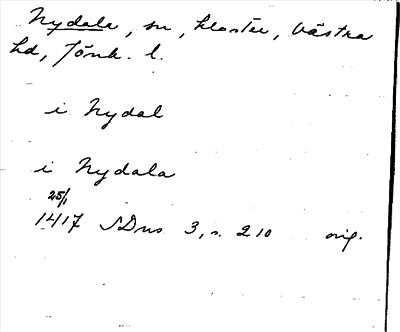 Nydala, sn, kloster, Västra
hd, Jönk. l.
i Nydal
i Nydala
25/1
1417 SDns 3, s. 210 orig.